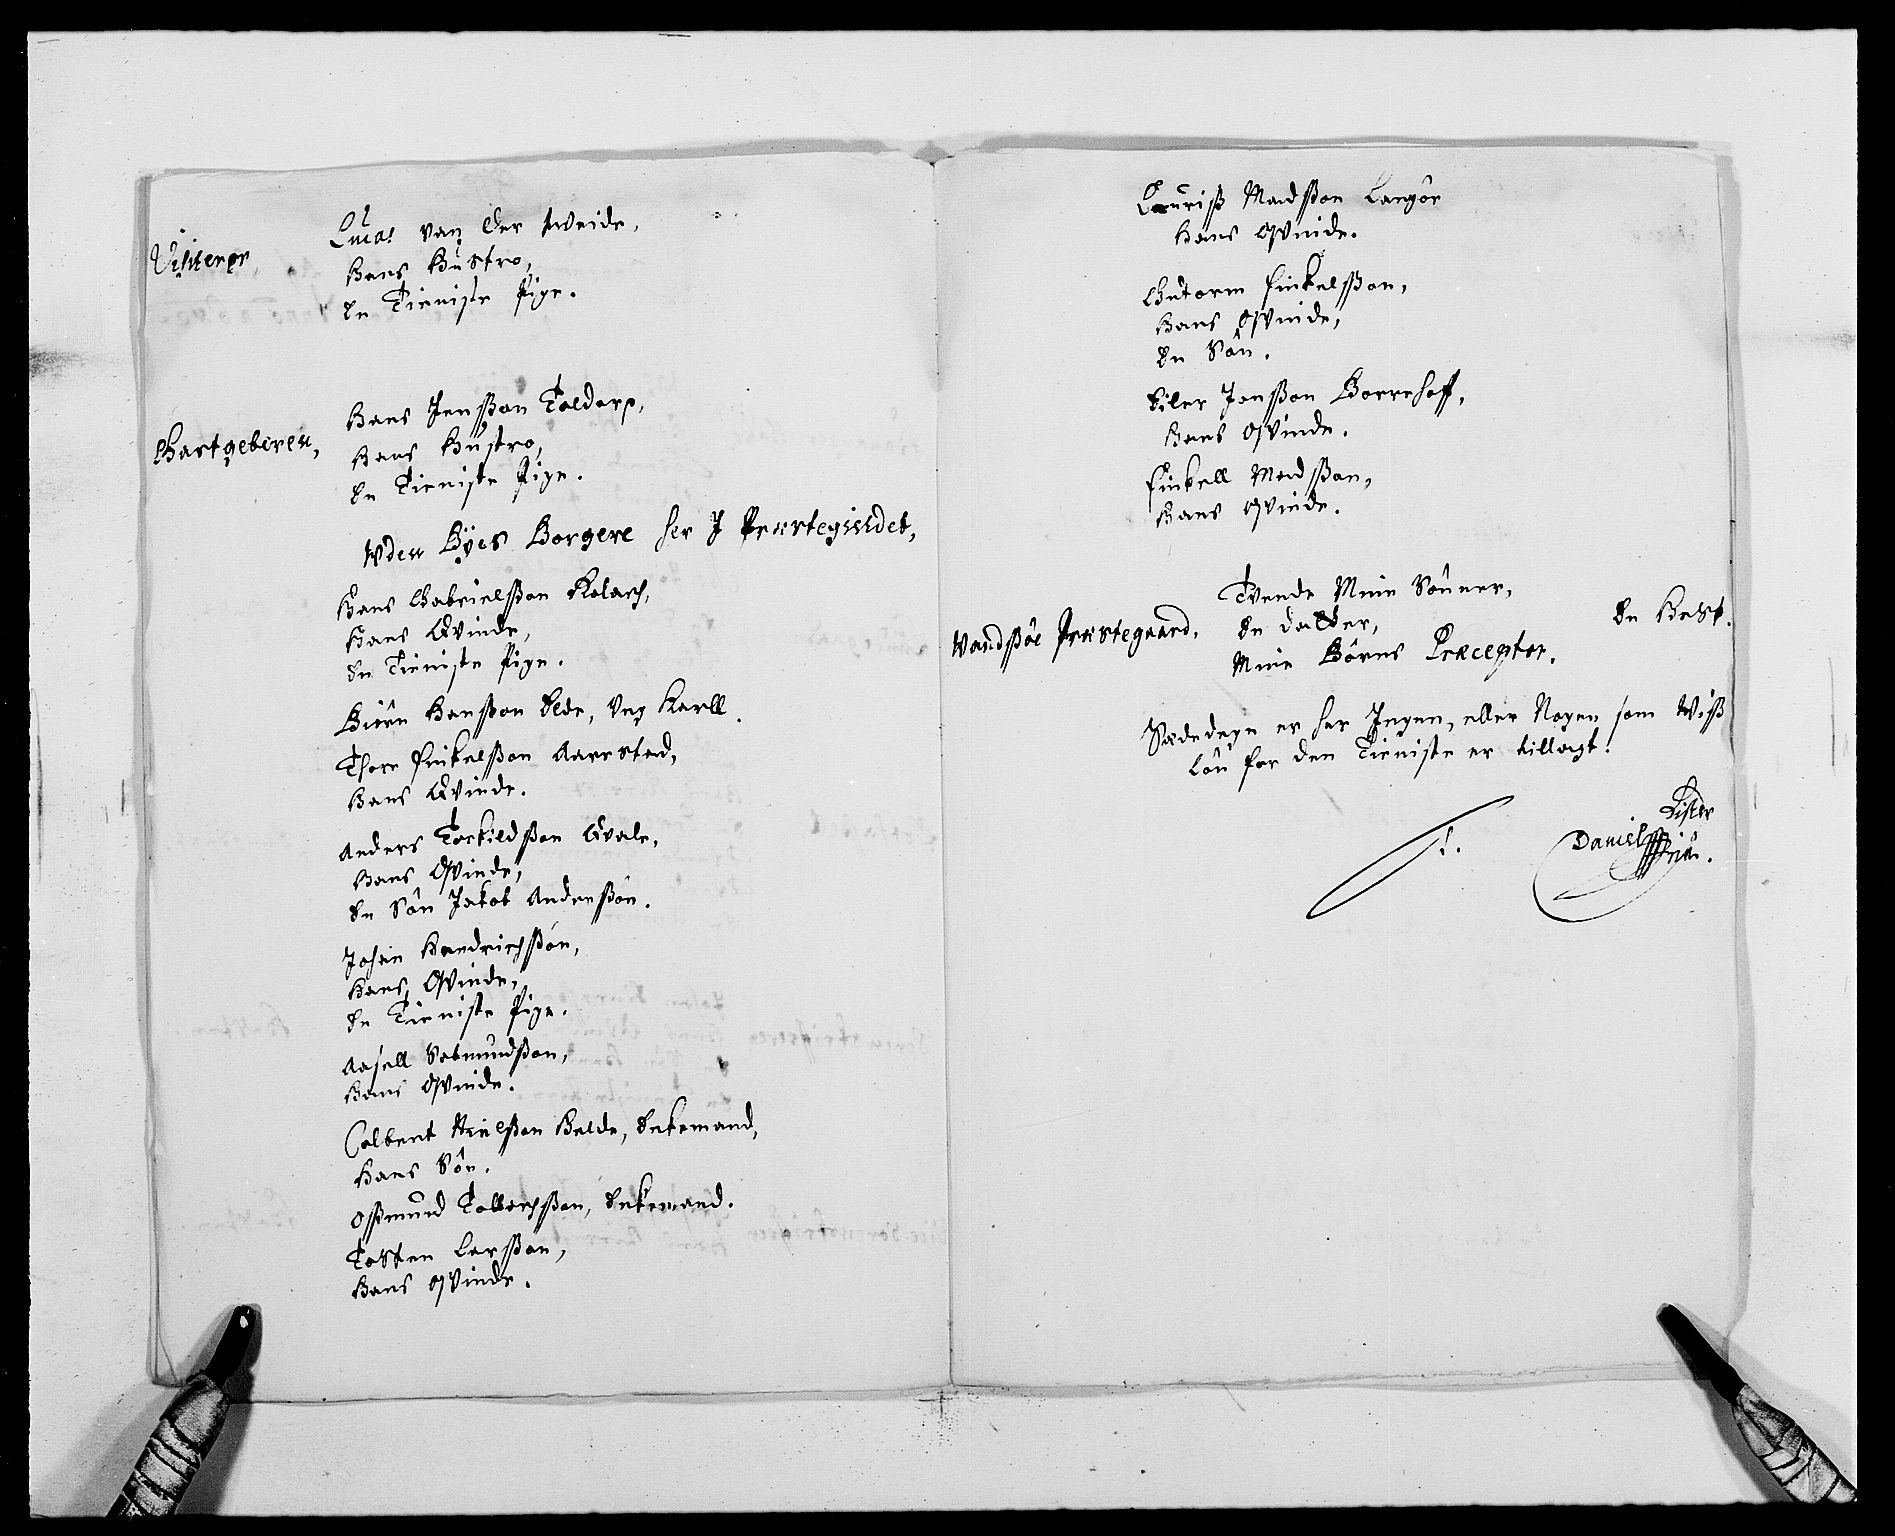 Visiterer
Lucas van der Weide,
Hans Hustro,
En Tieniste Pige.
Chartgeberen,
Hans Jenssøn Toldorp,
Hans Hustro,
En Tieniste Pige.
Uden Byes Borgere her J Præstegieldet,
Hans Gabrielssøn Kolach,
Hans Qvinde,
En Tieniste Pige.
Biørn Hanssøn Elde, Ung Karll.
Thore Finkelssøn Aarrestad,
Hans Qvinde.
Anders Torkildssøn Qvale,
Hans Qvinde,
En Søn Jakob Anderssøn.
Johan Handrichssøn,
Hans Qvinde,
En Tieniste Pige.
Aasell Sebmundssøn,
Hans Qvinde.
Colbent Nielssøn Helde, Enkemand,
Hans Søn.
Ossmund Tollochssøn, Enkemand.
Tosten Larssøn,
Hans Qvinde.
Lauriss Madssøn Langør
Hans Qvinde.
Gutorm Finkelssøn,
Hans Qvinde,
En Søn.
Eiler Jonssøn Borrehoff,
Hans Qvinde.
Finkell Madssøn,
Hans Qvinde.
Wandssøe Præstegaard,
Tvende Mine Sønner,
En Datter,
En Hest.
Mine Børns Præceptor.
Sædedegn er her Jngen, eller Nogen som Wiss
Løn for den Tieniste er tillagt.
Lister
Daniel